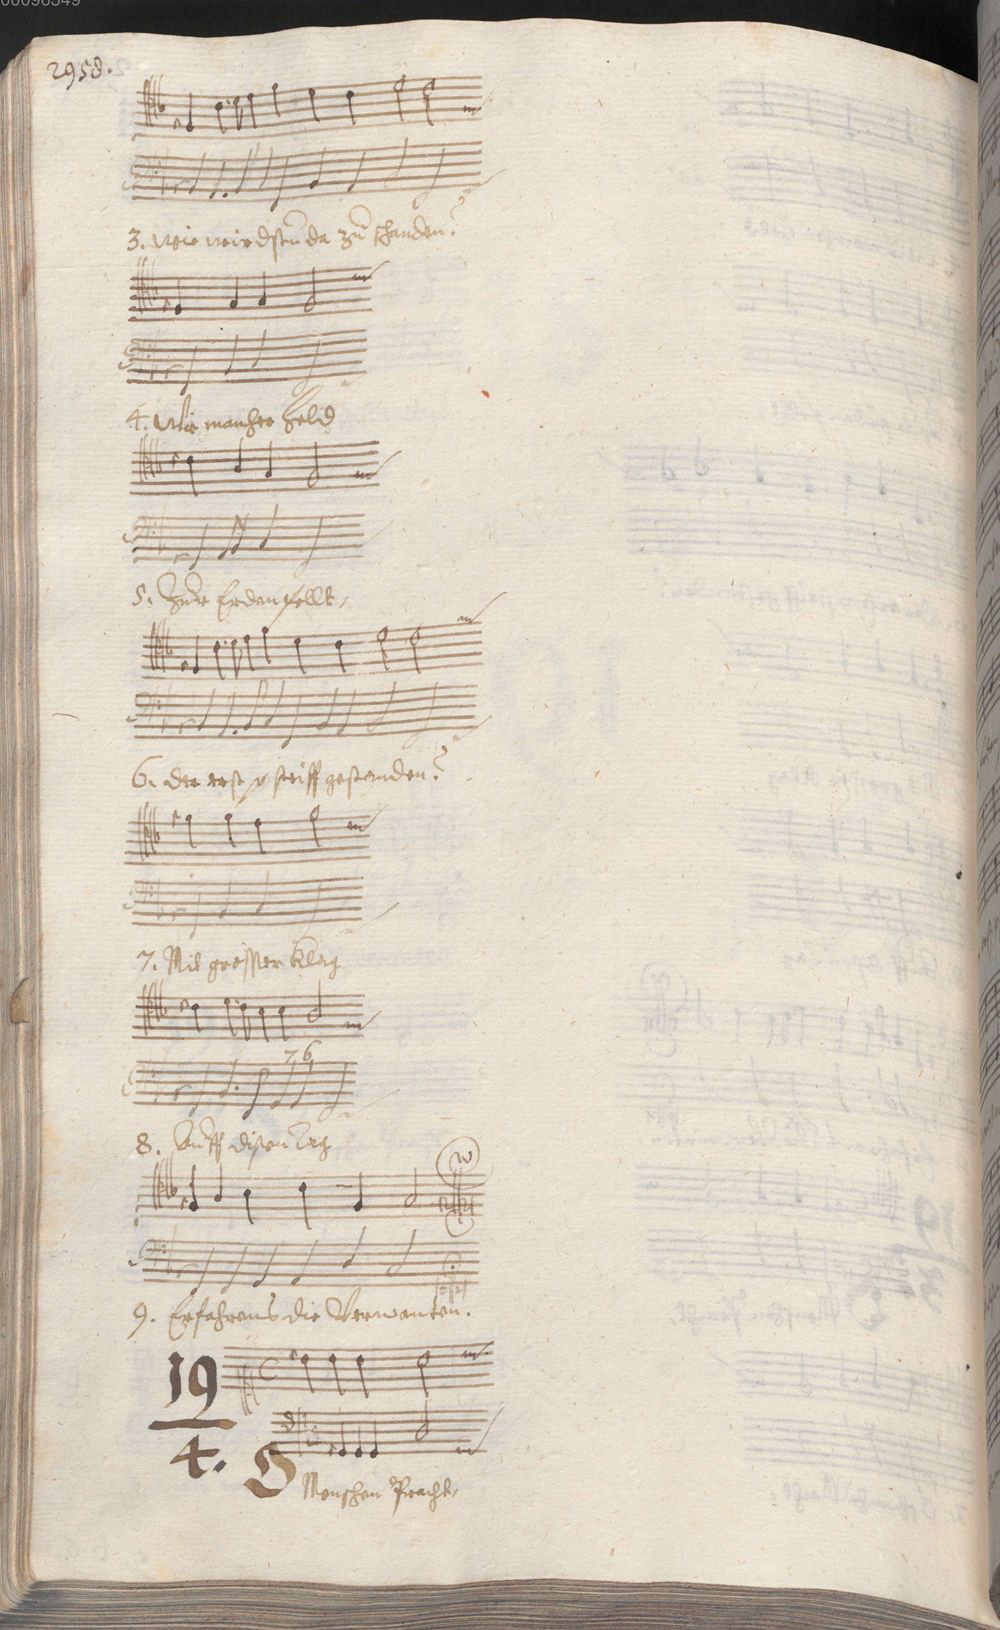 00096549
2958.
3. Wie wirdstu da zu schanden?
4. Wie mancher Held
5. Zur Erden fellt,
6. der erst so steiff gestanden?
7. Mit grosser Klag
7 6
8. Auff disen Tag
9. Erfahrens die Verwanten.
19
4.
O Menschen Pracht,